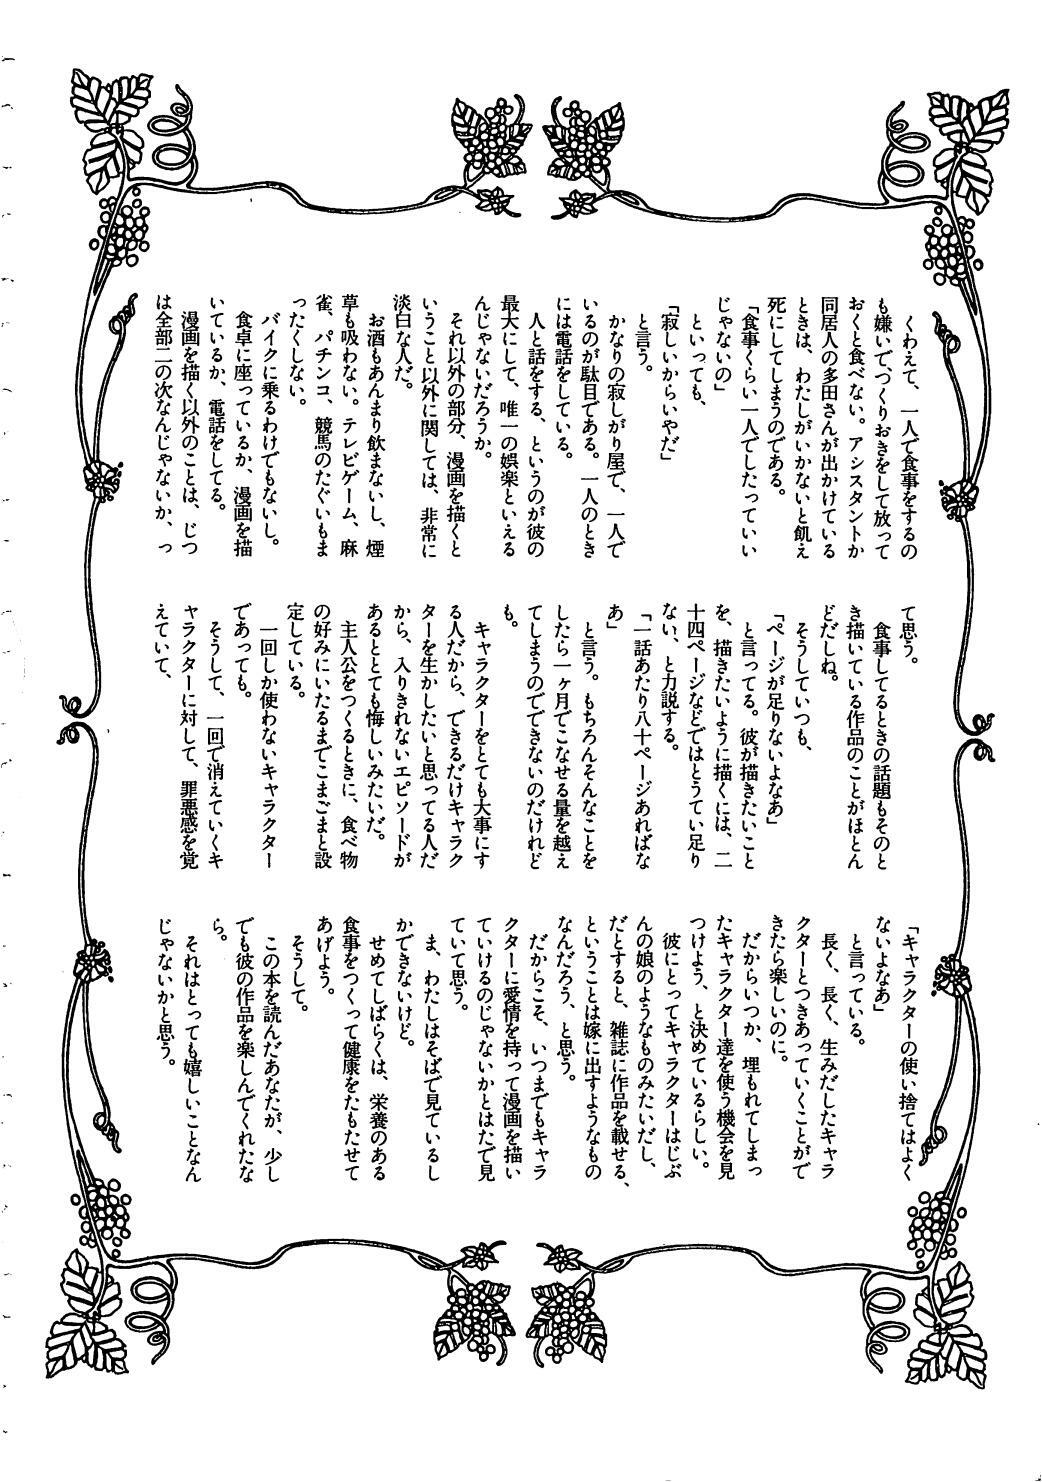 くわえて、一人で食事をするの
も嫌いで、つくりおきをして放って
おくと食べない。アシスタントか
同居人の多田さんが出かけている
ときは、わたしがいかないと飢え
死にしてしまうのである。
「食事くらい一人でしたっていい
じゃないの」
といっても、
「寂しいからいやだ」
と言う。
かなりの寂しがり屋で、一人で
いるのが駄目である。一人のとき
には電話をしている。
人と話をする、というのが彼の
最大にして、唯一の娯楽といえる
んじゃないだろうか。
それ以外の部分、漫画を描くと
いうこと以外に関しては、非常に
淡白な人だ。
お酒もあんまり飲まないし、煙
草も吸わない。テレビゲーム、麻
雀、パチンコ、競馬のたぐいもま
ったくしない。
バイクに乗るわけでもないし。
食卓に座っているか、漫画を描
いているか、電話をしてる。
漫画を描く以外のことは、じつ
は全部二の次なんじゃないか、っ
て思う。
食事してるときの話題もそのと
き描いている作品のことがほとん
どだしね。
そうしていつも、
「ページが足りないよなあ」
と言ってる。彼が描きたいこと
を、描きたいように描くには、二
十四ページなどではとうてい足り
ない、と力説する。
「一話あたり八十ページあればな
あ」
と言う。もちろんそんなことを
したら一ヶ月でこなせる量を越え
てしまうのでできないのだけれど
も。
キャラクターをとても大事にす
る人だから、できるだけキャラク
ターを生かしたいと思ってる人だ
から、入りきれないエピソードが
あるととても悔しいみたいだ。
主人公をつくるときに、食べ物
の好みにいたるまでこまごまと設
定している。
一回しか使わないキャラクター
であっても。
そうして、一回で消えていくキ
ャラクターに対して、罪悪感を覚
えていて、
「キャラクターの使い捨てはよく
ないよなあ」
と言っている。
長く、長く、生みだしたキャラ
クターとつきあっていくことがで
きたら楽しいのに。
だからいつか、埋もれてしまっ
たキャラクター達を使う機会を見
つけよう、と決めているらしい。
彼にとってキャラクターはじぶ
んの娘のようなものみたいだし、
だとすると、雑誌に作品を載せる、
ということは嫁に出すようなもの
なんだろう、と思う。
だからこそ、いつまでもキャラ
クターに愛情を持って漫画を描い
ていけるのじゃないかとはたで見
ていて思う。
ま、わたしはそばで見ているし
かできないけど。
せめてしばらくは、栄養のある
食事をつくって健康をたもたせて
あげよう。
そうして。
この本を読んだあなたが、少し
でも彼の作品を楽しんでくれたな
ら。
それはとっても嬉しいことなん
じゃないかと思う。